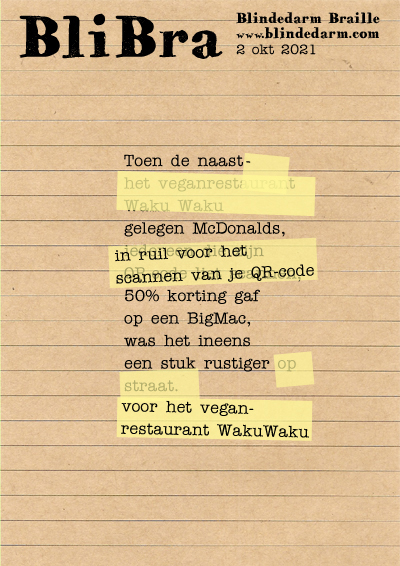 BliBra
Blindedarm Braille
www.blindedarm.com
2 okt 2021
Toen de naast-
het veganrestaurant
Waku Waku
gelegen McDonalds,
in ruil voor het
scannen van je QR-code
50% korting gaf
op een BigMac,
was het ineens
een stuk rustiger op
straat.
voor het vegan-
restaurant WakuWaku